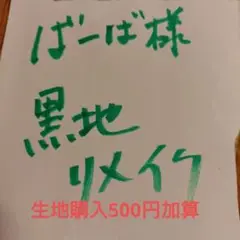 ばーば様
黒地
リメイク
生地購入500円加算